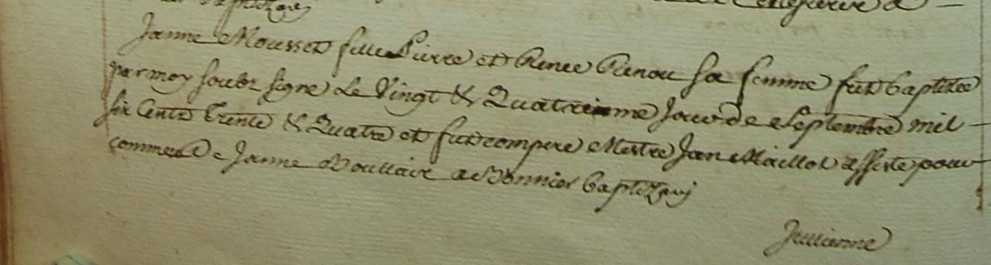 baptizavi
Janne Mousset fille Pierre et Renee Renou sa femme fut baptizee
par moy soubz signe Le Vingt & Quatriesme Jour de Septembre mil
six Centz Trente & Quatre et fut compere Mestre Jan Maillot assiste pour
commere Janne Boullair baptizavi
Jullienne